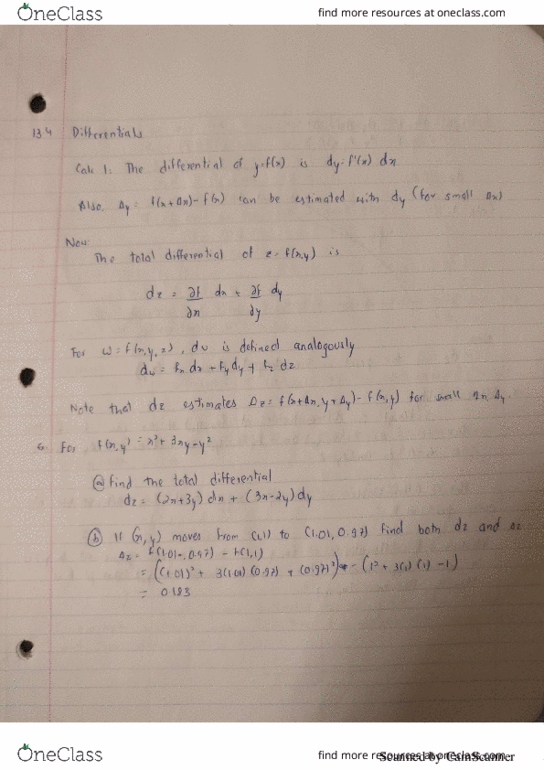 OneClass find more resources at oneclass.com
13.4 Differentials
Calc 1: The differential of y=f(x) is dy=f'(x) dx
Also, Δy= f(x+Δx)-f(x) can be estimated with dy (for small Δx)
Now:
The total differential of z=f(x,y) is
dz = ∂f/∂x dx + ∂f/∂y dy
For w=f(x,y,z), dw is defined analogously
dw = fx dx + fy dy + fz dz
Note that dz estimates Δz= f(x+Δx, y+Δy) - f(x,y) for small Δx Δy
For f(x,y) = x²+3xy-y²
ⓐ find the total differential
dz = (2x+3y) dx + (3x-2y) dy
ⓑ If (x,y) moves from (1,1) to (1.01, 0.97) find both dz and Δz
Δz = f(1.01, 0.97) - f(1,1)
= ((1.01)² + 3(1.01)(0.97) + (0.97)²) - (1² + 3(1)(1) - 1)
= 0.183
OneClass find more resources at oneclass.com
Scanned by CamScanner